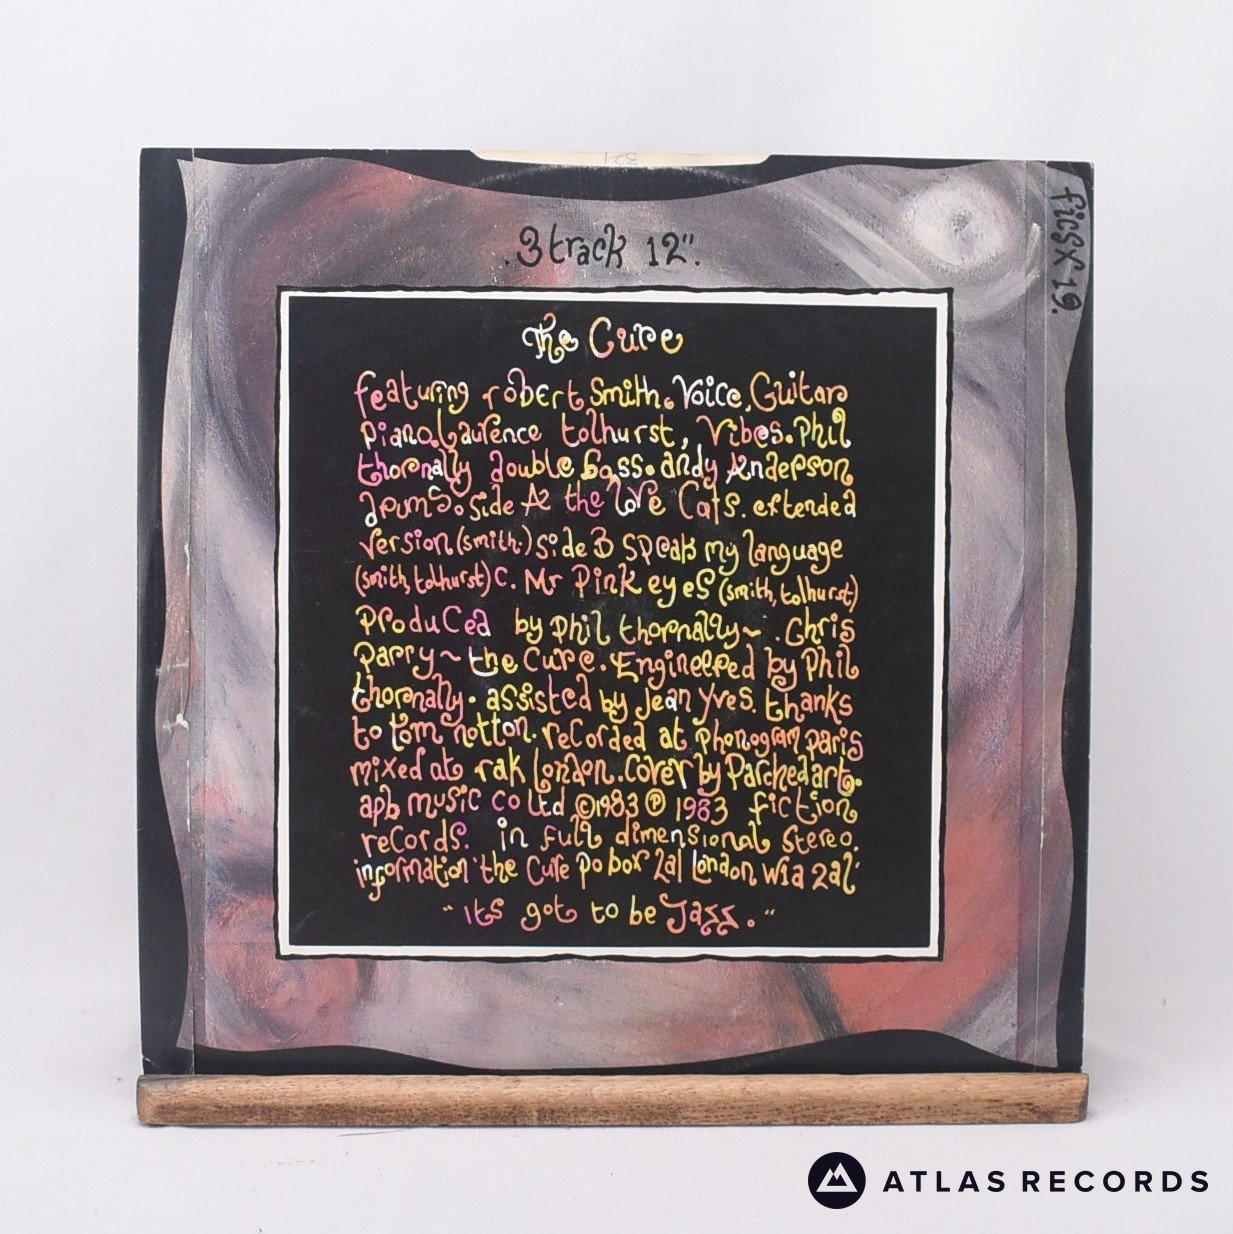 . 3 track 12".
ficsx 19.
The Cure
featuring robert Smith. Voice, Guitar
piano. Laurence tolhurst, Vibes. Phil
thornally double bass. andy Anderson
drums. side A the love Cats. extended
version (smith.) side B speak my language
(smith, tolhurst) C. Mr Pink eyes (smith, tolhurst)
Produced by Phil thornally~ . Chris
Parry~ the Cure. Engineered by Phil
thornally. assisted by Jean Yves. thanks
to tom notton. recorded at phonogram paris
mixed at rak london. Cover by Parchedart.
apb music co Ltd ©1983 ℗ 1983 fiction
records. in full dimensional stereo.
information 'the Cure po box 2al London w1a 2al'
"its got to be Jazz."
ATLAS RECORDS